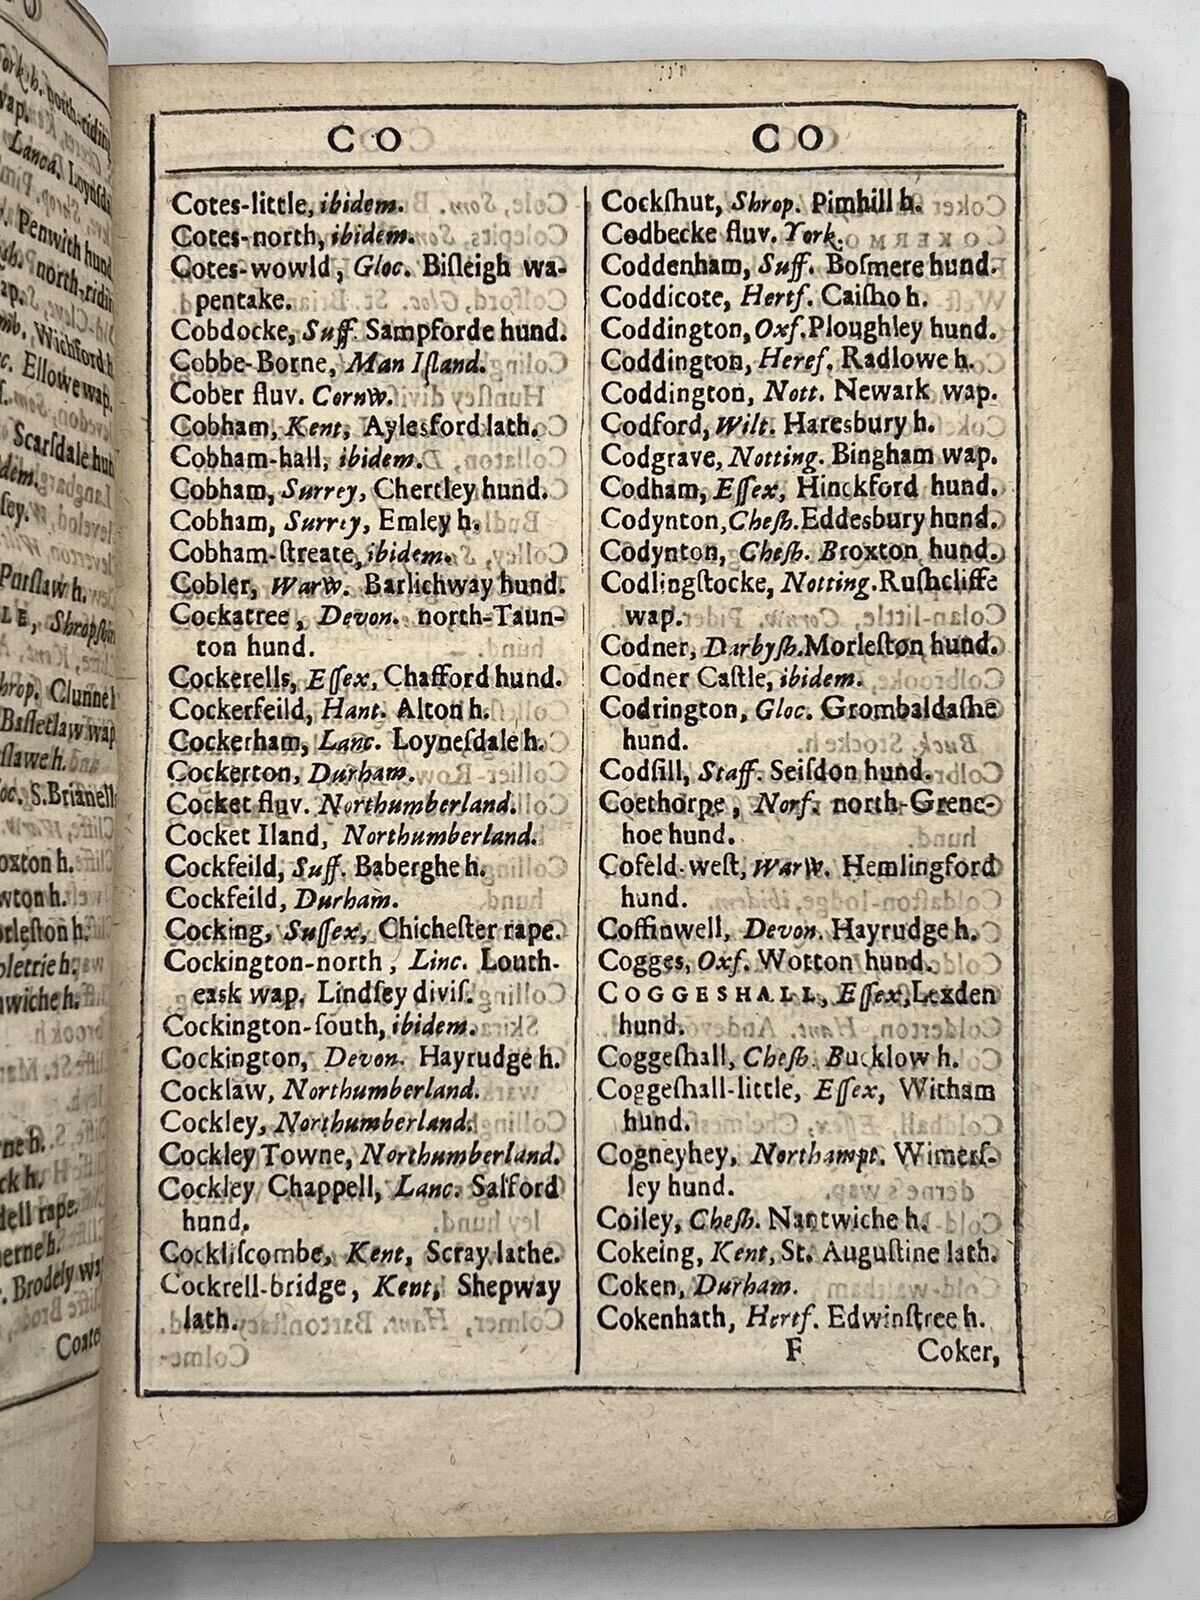 CO CO
Cotes-little, ibidem.
Cotes-north, ibidem.
Cotes-wowld, Gloc. Biſleigh wa-
pentake.
Cobdocke, Suff. Sampforde hund.
Cobbe-Borne, Man Iſland.
Cober fluv. Cornw.
Cobham, Kent, Aylesford lath.
Cobham-hall, ibidem.
Cobham, Surrey, Chertley hund.
Cobham, Surrey, Emley h.
Cobham-ſtreate, ibidem.
Cobler, Warw. Barlichway hund.
Cockatree, Devon. north-Taun-
ton hund.
Cockerells, Eſſex, Chafford hund.
Cockerfeild, Hant. Alton h.
Cockerham, Lanc. Loyneſdale h.
Cockerton, Durham.
Cocket fluv. Northumberland.
Cocket Iland, Northumberland.
Cockfeild, Suff. Baberghe h.
Cockfeild, Durham.
Cocking, Suſſex, Chicheſter rape.
Cockington-north, Linc. Louth-
eask wap. Lindſey diviſ.
Cockington-ſouth, ibidem.
Cockington, Devon. Hayrudge h.
Cocklaw, Northumberland.
Cockley, Northumberland.
Cockley Towne, Northumberland.
Cockley Chappell, Lanc. Salford
hund.
Cockliſcombe, Kent, Scray lathe.
Cockrell-bridge, Kent, Shepway
lath.
Cockſhut, Shrop. Pimhill h.
Codbecke fluv. York.
Coddenham, Suff. Boſmere hund.
Coddicote, Hertf. Caiſho h.
Coddington, Oxf. Ploughley hund.
Coddington, Heref. Radlowe h.
Coddington, Nott. Newark wap.
Codford, Wilt. Haresbury h.
Codgrave, Notting. Bingham wap.
Codham, Eſſex, Hinckford hund.
Codynton, Cheſh. Eddesbury hund.
Codynton, Cheſh. Broxton hund.
Codlingſtocke, Notting. Ruſhcliffe
wap.
Codner, Darbyſh. Morleſton hund.
Codner Caſtle, ibidem.
Codrington, Gloc. Grombaldaſhe
hund.
Codſill, Staff. Seiſdon hund.
Coethorpe, Norf. north-Grene-
hoe hund.
Cofeld-weſt, Warw. Hemlingford
hund.
Coffinwell, Devon. Hayrudge h.
Cogges, Oxf. Wotton hund.
COGGESHALL, Eſſex, Lexden
hund.
Coggeſhall, Cheſh. Bucklow h.
Coggeſhall-little, Eſſex, Witham
hund.
Cogneyhey, Northampt. Wimerſ-
ley hund.
Coiley, Cheſh. Nantwiche h.
Cokeing, Kent, St. Auguſtine lath.
Coken, Durham.
Cokenhath, Hertf. Edwinſtree h.
F Coker,